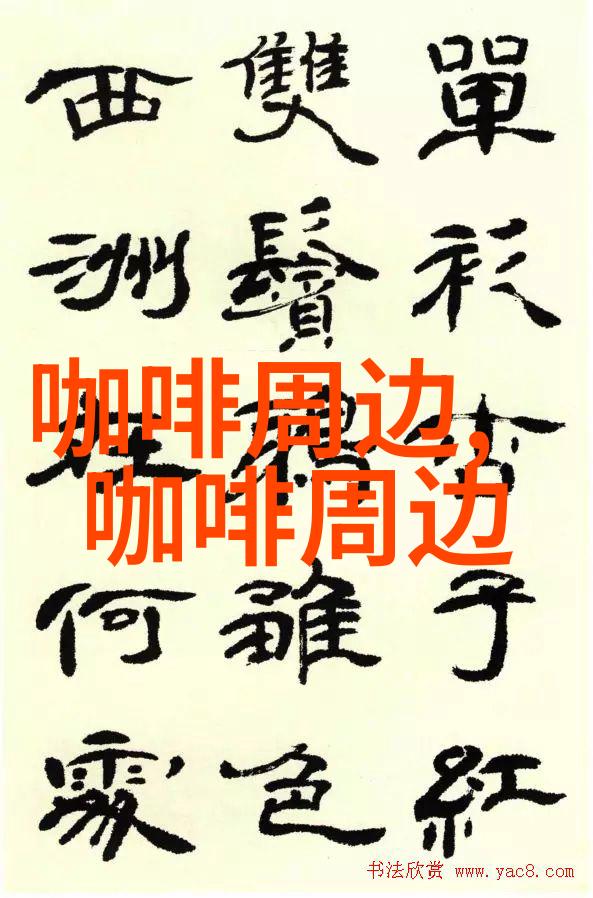 單衫杏子紅
雙鬢雛色
西洲在何處
咖啡周边,
咖啡周边
书法欣赏 www.yac8.com